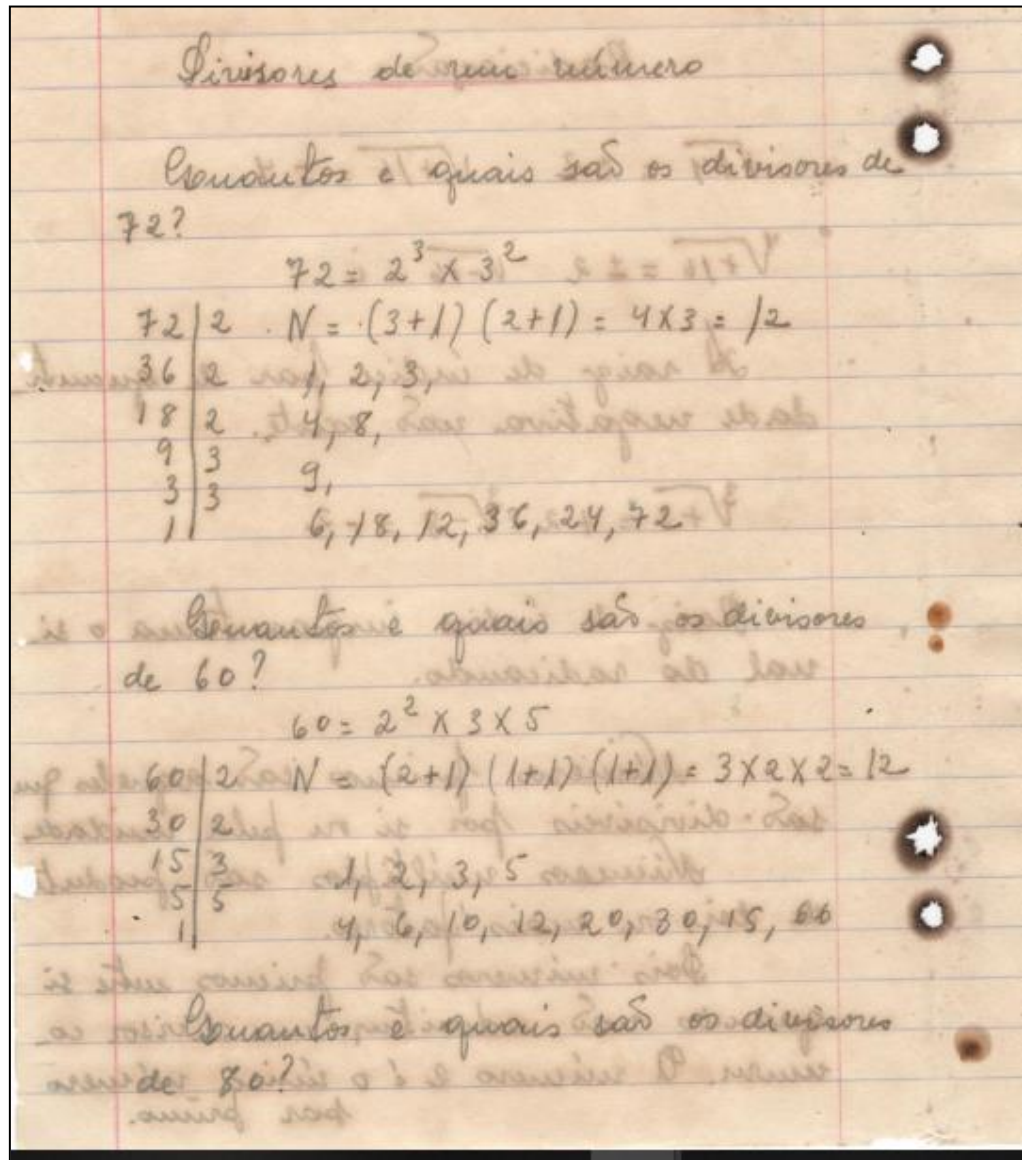 Divisores de um número
Quantos e quais são os divisores de
72?
72 = 2³ x 3²
72 | 2 . N = (3+1) (2+1) = 4x3 = 12
36 | 2 1, 2, 3,
18 | 2 4, 8,
9 | 3
3 | 3 9,
1 | 6, 18, 12, 36, 24, 72
Quantos e quais são os divisores
de 60?
60 = 2² x 3 x 5
60 | 2 N = (2+1) (1+1) (1+1) = 3x2x2 = 12
30 | 2
15 | 3 1, 2, 3, 5
5 | 5
1 | 4, 6, 10, 12, 20, 30, 15, 60
Quantos e quais são os divisores
de 80?